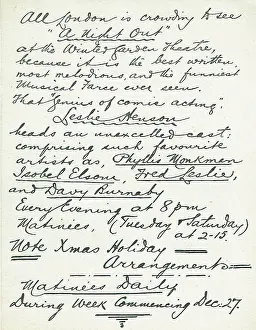 All London is crowding to see
"A Night Out"
at the Winter Garden Theatre,
because it is the best written,
most melodious, and the funniest
Musical Farce ever seen.
That "Genius of comic acting",
Leslie Henson
heads an unexcelled cast;
comprising such favourite
artists as, Phyllis Monkman
Isobel Elsom, Fred Leslie,
and Davy Burnaby
Every Evening at 8 pm
Matinées, (Tuesday & Saturday)
at 2-15.
Note Xmas Holiday
Arrangements
Matinées Daily
During Week Commencing Dec: 27.